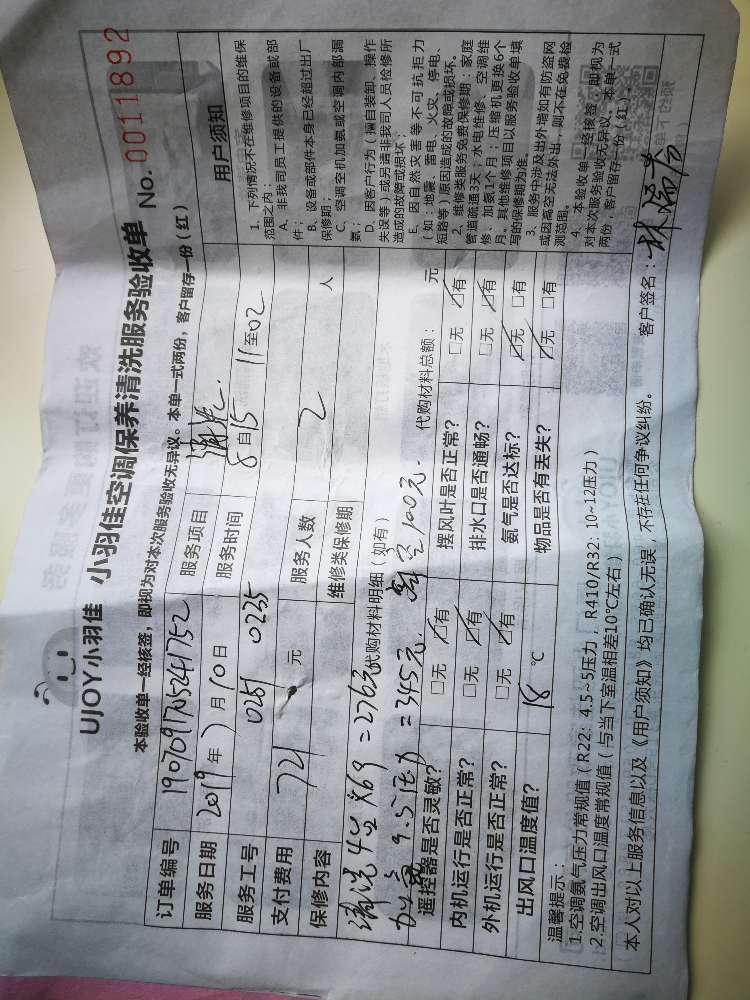 UJOY小羽佳 小羽佳空调保养清洗服务验收单 No. 0011892
本验收单一经核签，即视为对本次服务验收无异议。本单一式两份，客户留存一份（红）
订单编号 1907091705241752 服务项目 清洗
服务日期 2019年7月10日 服务时间 8自15 11至02
服务工号 0251 0235
支付费用 721 元 服务人数 2 人
保修内容 维修类保修期
清洗4台×69=276元 代购材料明细（如有） 代购材料总额： 元
加氨 9.5压力=345元. 100元.
遥控器是否灵敏？ □无 □有 摆风叶是否正常？ □无 □有
内机运行是否正常？ □无 □有 排水口是否通畅？ □无 □有
外机运行是否正常？ □无 □有 氨气是否达标？ □无 □有
出风口温度值？ 18 ℃ 物品是否有丢失？ □无 □有
温馨提示：
1.空调氨气压力常规值（R22：4.5~5压力，R410/R32：10~12压力）
2.空调出风口温度常规值（与当下室温相差10℃左右）
本人对以上服务信息以及《用户须知》均已确认无误，不存在任何争议纠纷。 客户签名：
用户须知
1、下列情况不在维修项目的维保
范围之内：
A、非我司员工提供的设备或部
件；
B、设备或部件本身已经超过出厂
保修期；
C、空调空机加氨或空调内部漏
氨；
D、因客户行为（擅自装卸、操作
失误等）或另请非我司人员检修所
造成的故障或损坏；
E、因自然灾害等不可抗拒力
（如：地震、雷电、火灾、停电、
短路等）原因造成的故障或损坏。
2、维修类服务免费保修期：家庭
管道疏通3天；水电维修、空调维
修、加氨1个月；压缩机更换6个
月。其他维修项目以服务验收单填
写的保修期为准。
3、服务中涉及出外墙如有防盗网
或因高空无法外出，则不在免费检
测范围。
4、本验收单一经核签，即视为
对本次服务验收无异议。本单一式
两份，客户留存一份（红）。